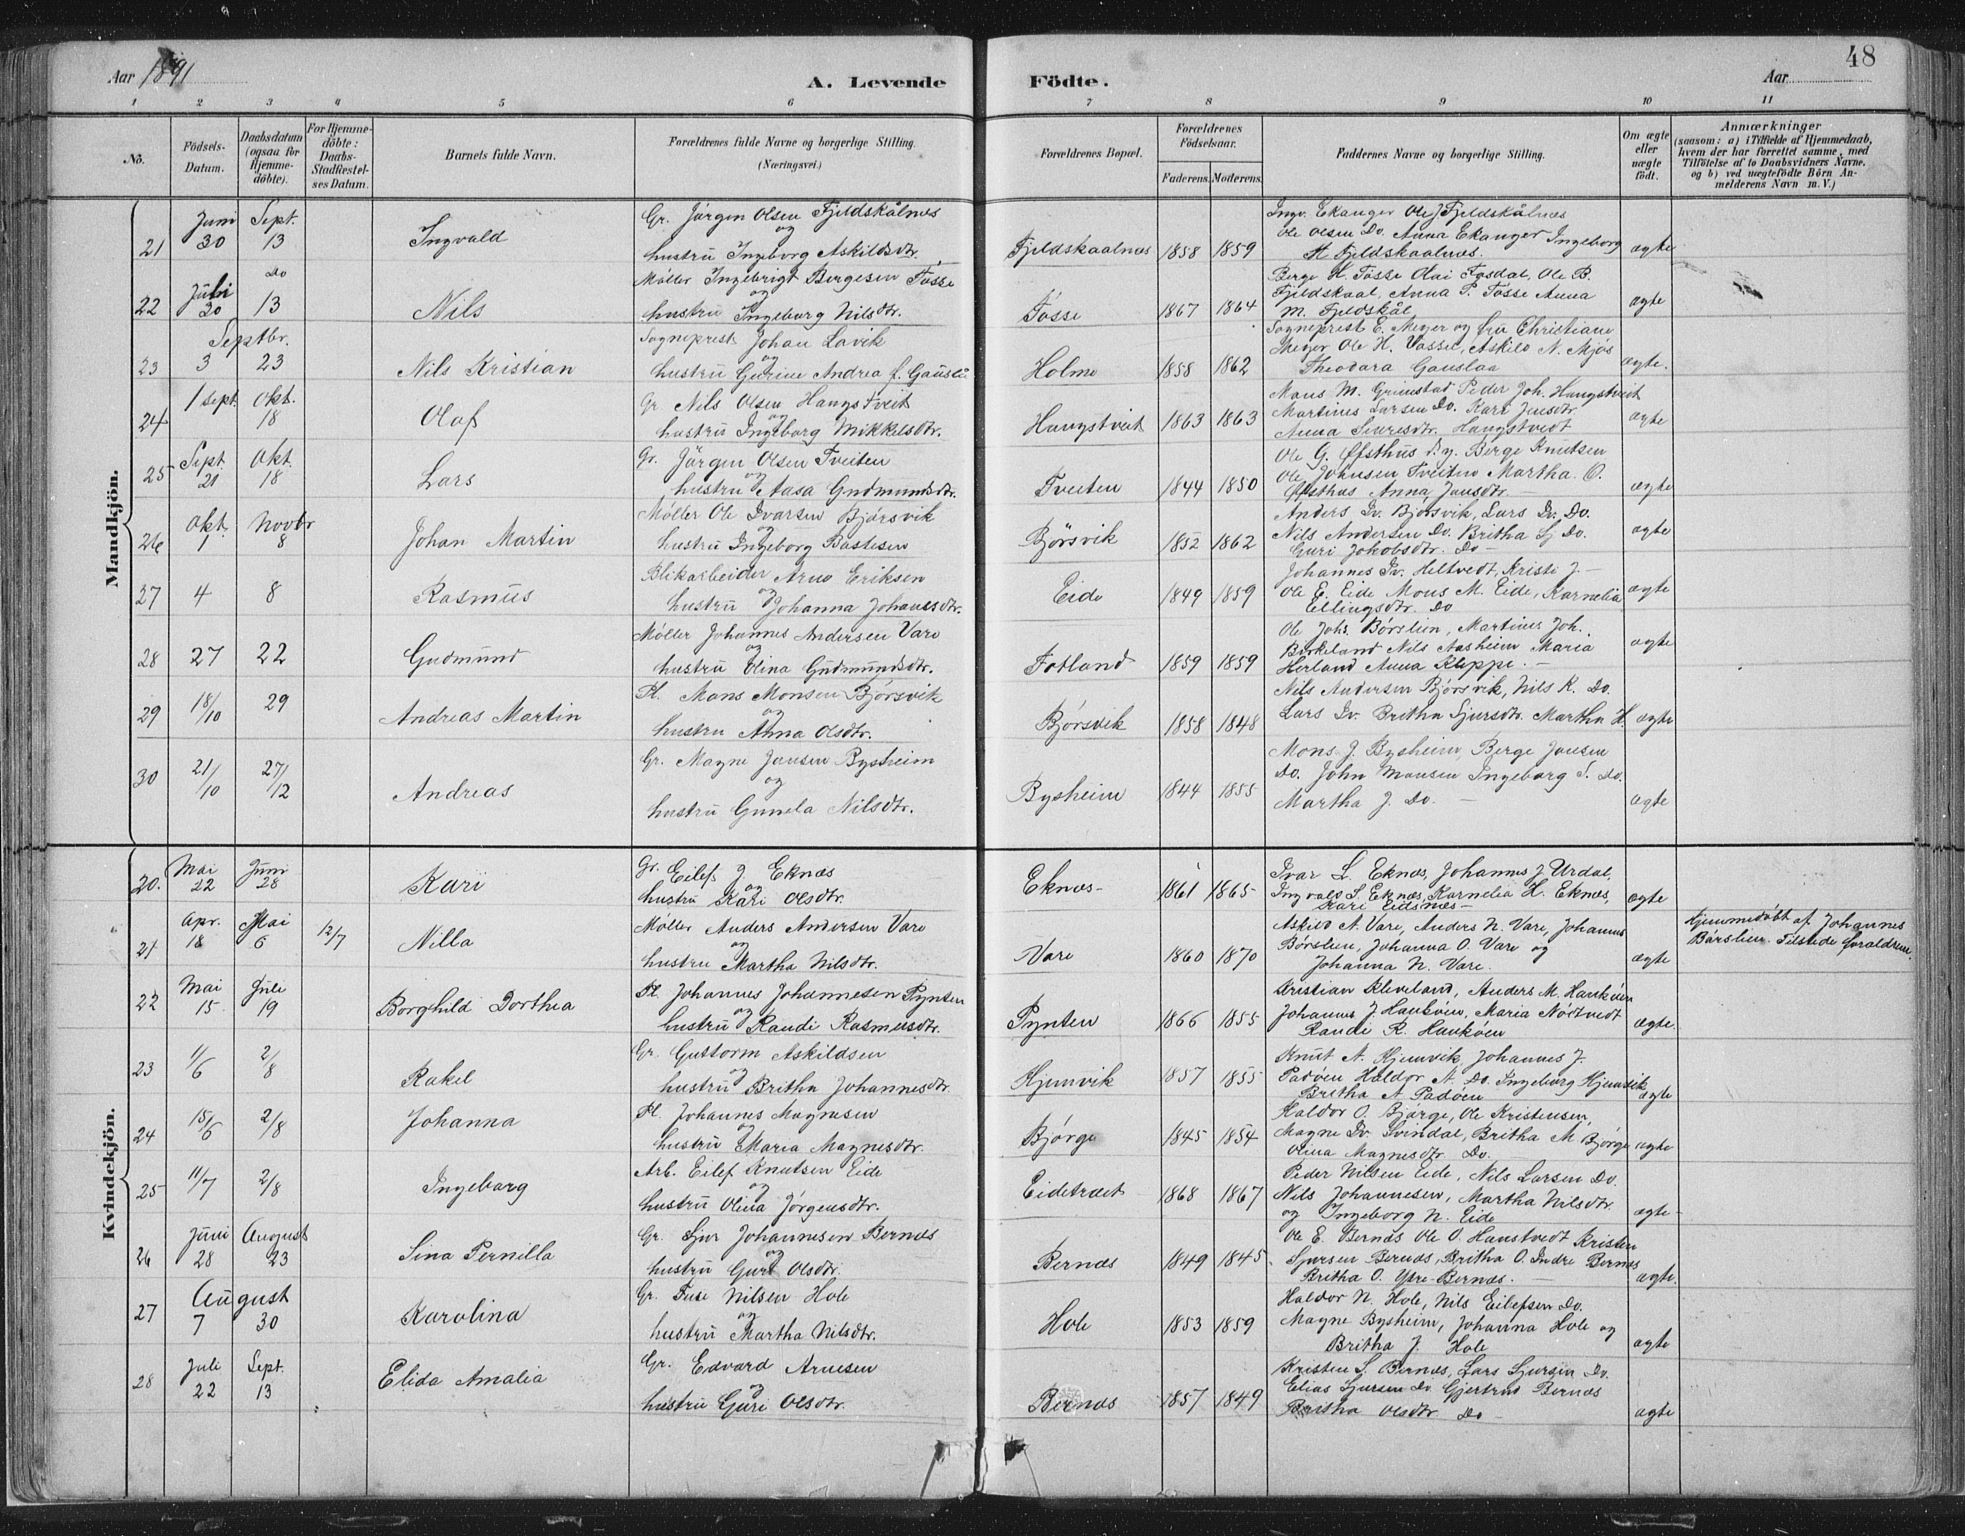 Aar 1891
A. Levende
Födte.
Aar
48
1 2 3 4 5 6 7 8 9 10 11
No.
Födsels-Datum.
Daabsdatum (ogsaa for Hjemme-döbte).
For Hjemme-döbte: Daabs-Stadfæstel-ses Datum.
Barnets fulde Navn.
Forældrenes fulde Navne og borgerlige Stilling.
(Næringsvei.)
Forældrenes Bopæl.
Forældrenes Födselsaar.
Faderens. Moderens.
Faddernes Navne og borgerlige Stilling.
Om ægte eller uægte födt.
Anmærkninger
(saasom: a) i Tilfælde af Hjemmedaab,
hvem der har forrettet samme, med
Tilföielse af to Daabsvidners Navne,
og b) ved uægtefödte Börn An-
melderens Navn m. V.)
Mandkjön.
21 Juni 30 Sept. 13 Ingvald
Gr. Jörgen Olsen Fjeldskålnes
og
hustru Ingeborg Askildsdtr.
Fjeldskaalnes 1858 1859
Ingv. Ekanger Ole J Fjeldskålnes
Ole Olsen Do. Anna Ekanger Ingeborg
H Fjeldskaalnes.
ægte
22 Juli 30 Do 13 Nils
Møller Ingebrigt Bergesen Fosse
og
hustru Ingeborg Nilsdtr.
Fosse 1867 1864
Berge H. Fosse Olai Fosdal, Ole B.
Fjeldskaal, Anna P. Fosse Anna
M. Fjeldskål
ægte
23 Septbr. 3 23 Nils Kristian
Sogneprest Johan Lavik
og
hustru Gurine Andrea f. Gausla
Holme 1858 1862
Sogneprest E. Meyer og fru Christiane
Meyer Ole H. Vasse, Askild N. Mjøs
Theodora Gauslaa
ægte.
24 1 sept. Okt. 18 Olaf
Gr. Nils Olsen Hangstveit
og
hustru Ingeborg Mikkelsdtr.
Hangstveit 1863 1863
Mons M. Grimstad Peder Joh. Hangstveit
Martinus Larsen Do. Kari Jensdtr.
Anna Sjursdtr. Hangstvedt
ægte
25 Sept. 21 Okt. 18 Lars
Gr. Jörgen Olsen Tveiten
og
hustru Aasa Gudmundsdtr.
Tveiten 1844 1850
Ole G. Øfsthus d.y. Berge Knutsen
Ole Johnsen Tveiten Martha O.
Øfsthus Anna Jansdtr. —
ægte
26 Okt. 1 Novbr 8 Johan Martin
Møller Ole Ivarsen Bjørsvik
og
hustru Ingeborg Bastesen
Bjørsvik 1852 1862
Anders Iv. Bjørsvik, Lars Iv. Do.
Nils Andersen Do. Britha Sj Do.
Guri Jakobsdtr. Do —
ægte
27 4 8 Rasmus
Blikarbeider Arne Eriksen
og
hustru Johanna Johansdtr.
Eide 1849 1859
Johannes Iv. Heltvedt, Kristi J. —
Ole E. Eide Mons M. Eide, Kornelia
Ellingsdtr. Do
ægte
28 27 22 Gudmund
Møller Johannes Andersen Vare
og
hustru Olina Gudmundsdtr.
Fotland 1859 1859
Ole Johs. Børslien, Martines Joh.
Birkeland Nils Aasheim Maria
Herland Anna Kleppe. —
ægte
29 18/10 29 Andreas Martin
Pl. Mons Monsen Bjørsvik
og
hustru Anna Olsdtr.
Bjørsvik 1858 1848
Nils Andersen Bjørsvik, Nils K. Do.
Lars Iv. Britha Sjursdtr. Martha H.
ægte
30 21/10 27/12 Andreas
Gr. Magne Jansen Bysheim
og
hustru Gunela Nilsdtr.
Bysheim 1844 1855
Mons J. Bysheim, Berge Jansen
Do. John Monsen Ingeborg S. Do.
Martha J. Do. —
ægte
Kvindekjön.
20. Mai 22 Juni 28 Kari
Gr. Eilef J. Eknæs
og
hustru Kari Olsdtr.
Eknæs 1861 1865
Ivar L. Eknæs, Johannes J Urdal,
Ingvald S. Eknæs, Kornelia H. Eknæs,
Kari Eidsnæs —
ægte
21 Apr. 18 Mai 6 12/7 Nilla
Møller Anders Andersen Vare
og
hustru Martha Nilsdtr.
Vare 1860 1870
Askild A. Vare, Anders N. Vare, Johannes
Børslien, Johanna O. Vare og
Johanna N. Vare.
ægte
Hjemmedøbt af Johannes
Börslien. Tilstede forældrene.
22 Mai 15 Juli 19 Borghild Dorthea
Pl. Johannes Johannesen Pynten
og
hustru Randi Rasmusdtr.
Pynten 1866 1855
Kristian Kleveland, Anders M. Haukøen
Johannes J. Haukøen, Maria Nøstvedt
Randi R. Haukøen
ægte
23 11/6 2/8 Rakel
Gr. Guttorm Askildsen
og
hustru Britha Johannesdtr.
Hjemvik 1857 1855
Knut A. Hjemvik, Johannes J.
Padøen Haldor A. Do. Ingeborg Hjemvik
Britha A Padøen
ægte
24 15/6 2/8 Johanna
Pl. Johannes Magnesen
og
hustru Maria Magnesdtr.
Bjørge 1845 1854
Haldor O. Bjørge, Ole Kristensen,
Magne Iv. Svindal, Britha M Bjørge
Olina Magnesdtr Do.
ægte
25 11/7 2/8 Ingeborg
Arb. Eilef Knutsen Eide
og
hustru Olina Jörgensdtr.
Eidetræet 1868 1867
Peder Nilsen Eide, Nils Larsen Do.
Nils Johannesen, Martha Nilsdtr
og Ingeborg N. Eide
ægte
26 Juni 28 August 23 Sina Pernilla
Gr. Sjur Johannesen Bernæs
og
hustru Guri Olsdtr.
Bernæs 1849 1845
Ole E. Bernæs Ole O. Hanstvedt Kristen
Sjursen Bernæs, Britha O. Indre Bernæs
Britha O. Ytre Bernæs. —
ægte
27 August 7 30 Karolina
Gr. Tuse Nilsen Hole
og
hustru Martha Nilsdtr.
Hole 1853 1859
Haldor N. Hole, Nils Eilefsen Do.
Magne Bysheim, Johanna Hole og
Britha J. Hole
ægte
28 Juli 22 Sept. 13 Elida Amalia
Gr. Edvard Arnesen
og
hustru Guri Olsdtr.
Bernæs 1857 1849
Kristen S. Bernæs, Lars Sjursen Do.
Elias Sjursen Do Gjertrud Bernæs
Britha Olsdtr Do —
ægte